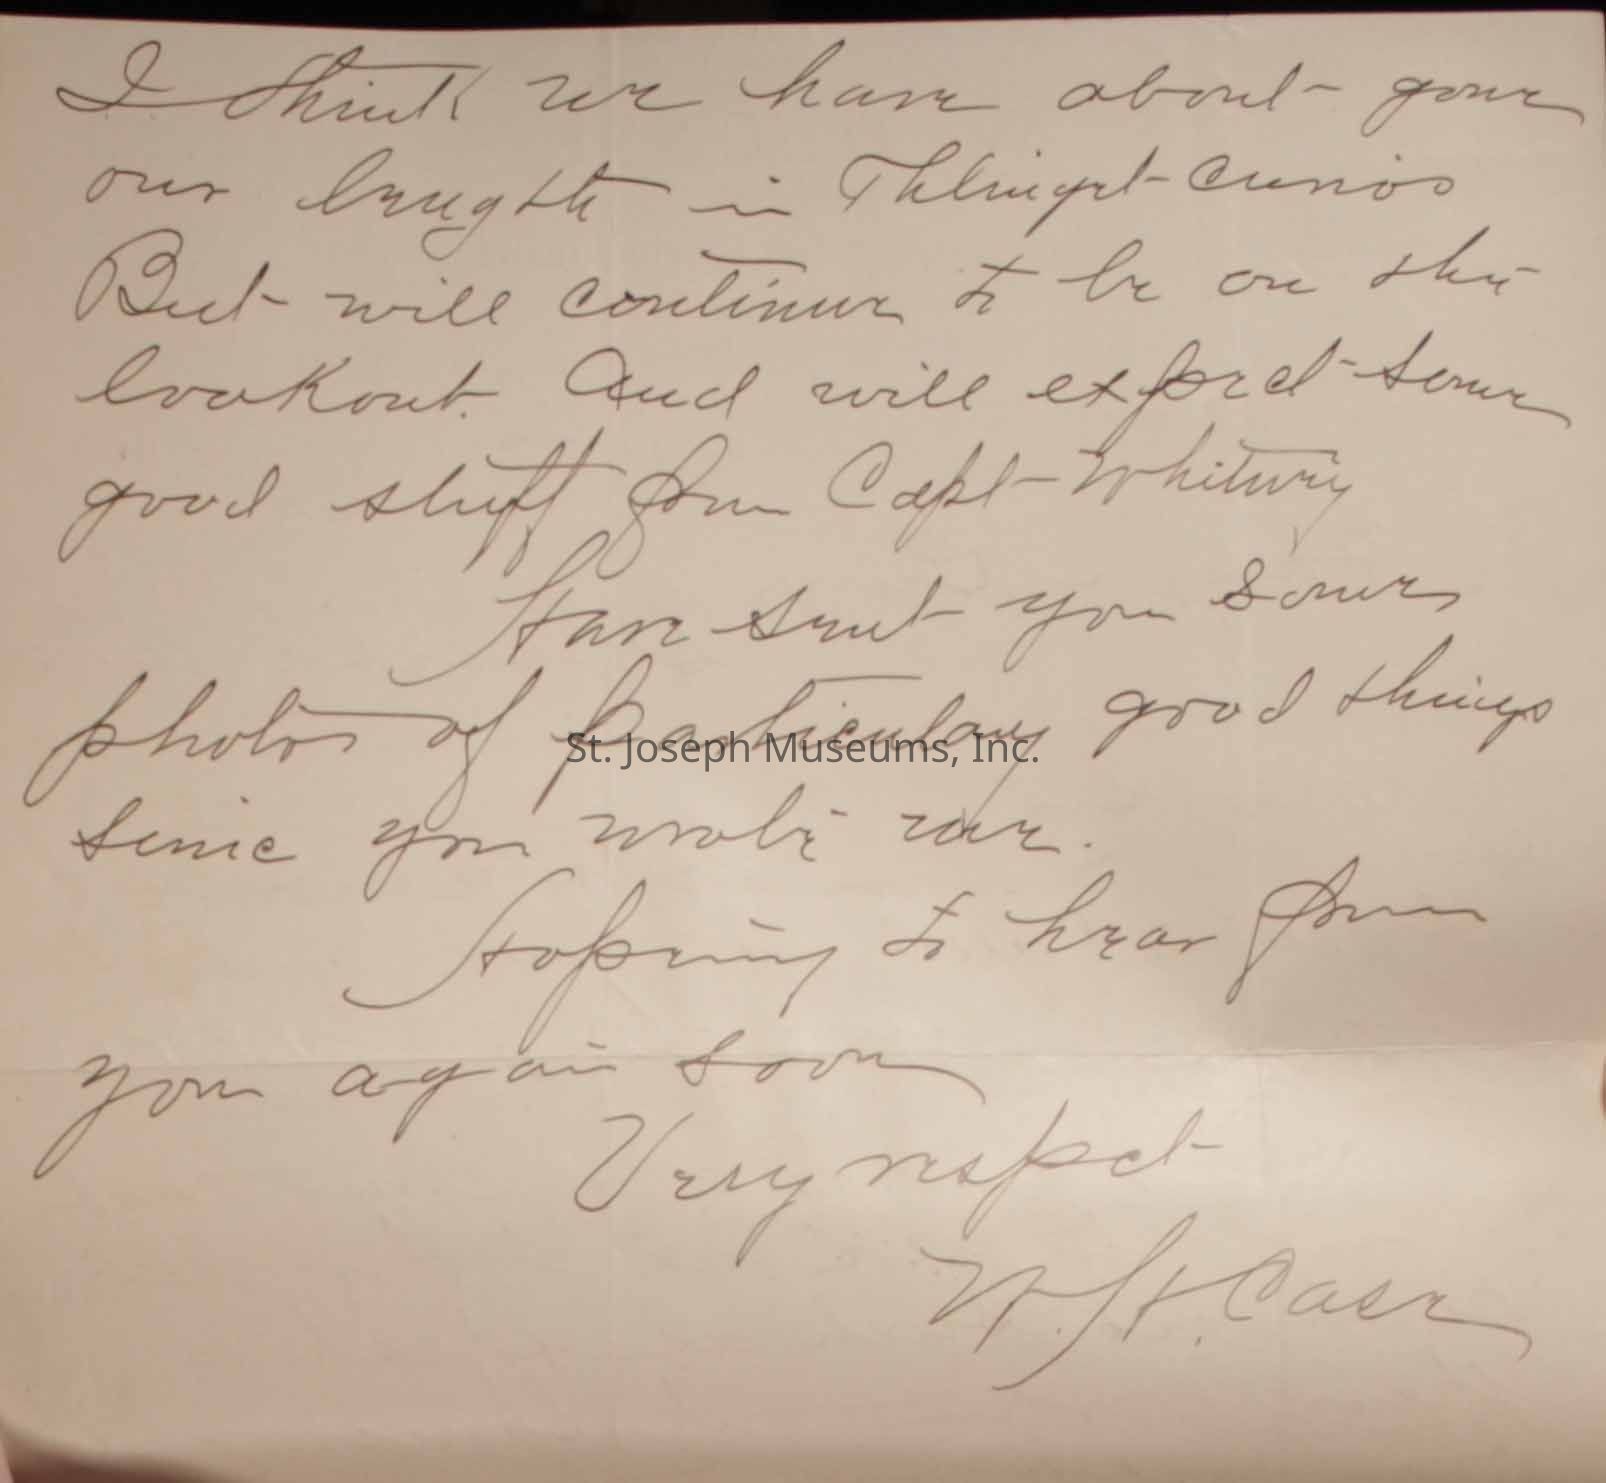 I think we have about gone
our lenghth in Thlinget Curios
But will continue to be on the
lookout. And will expect some
good stuff from Capt Whitney
Have sent you some
photos of particulary good things
St. Joseph Museums, Inc.
sinic you wrote me.
Hopeing to hear from
you again soon
Very respct
W. H. Case